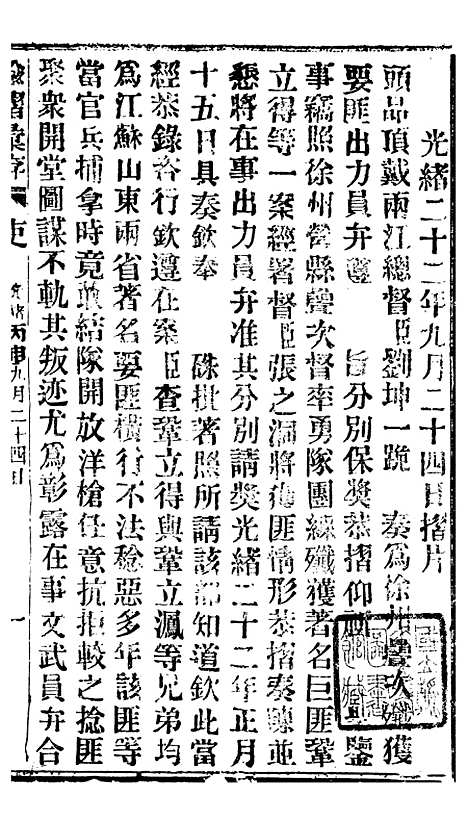 光緒二十二年九月二十四日摺片
頭品頂戴兩江總督臣劉坤一跪　奏爲徐州疊次殲獲
要匪出力員弁遵　旨分別保獎恭摺仰　鑒
事竊照徐州營縣疊次督率勇隊團練殲獲著名巨匪鞏
立得等一案經署督臣張之洞將　匪情形恭摺奏　並
懇將在事出力員弁准其分別請獎光緒二十二年正月
十五日具奏欽奉　硃批著照所請該部知道欽此當
經恭錄咨行欽遵在案臣查鞏立得與鞏立　等兄弟均
爲江蘇山東兩省著名要匪橫行不法稔惡多年該匪等
當官兵捕拿時竟敢結隊開放洋槍任意抗拒較之捻匪
聚衆開堂圖謀不軌其叛迹尤爲彰露在事文武員弁合
丙申九月二十四日　一